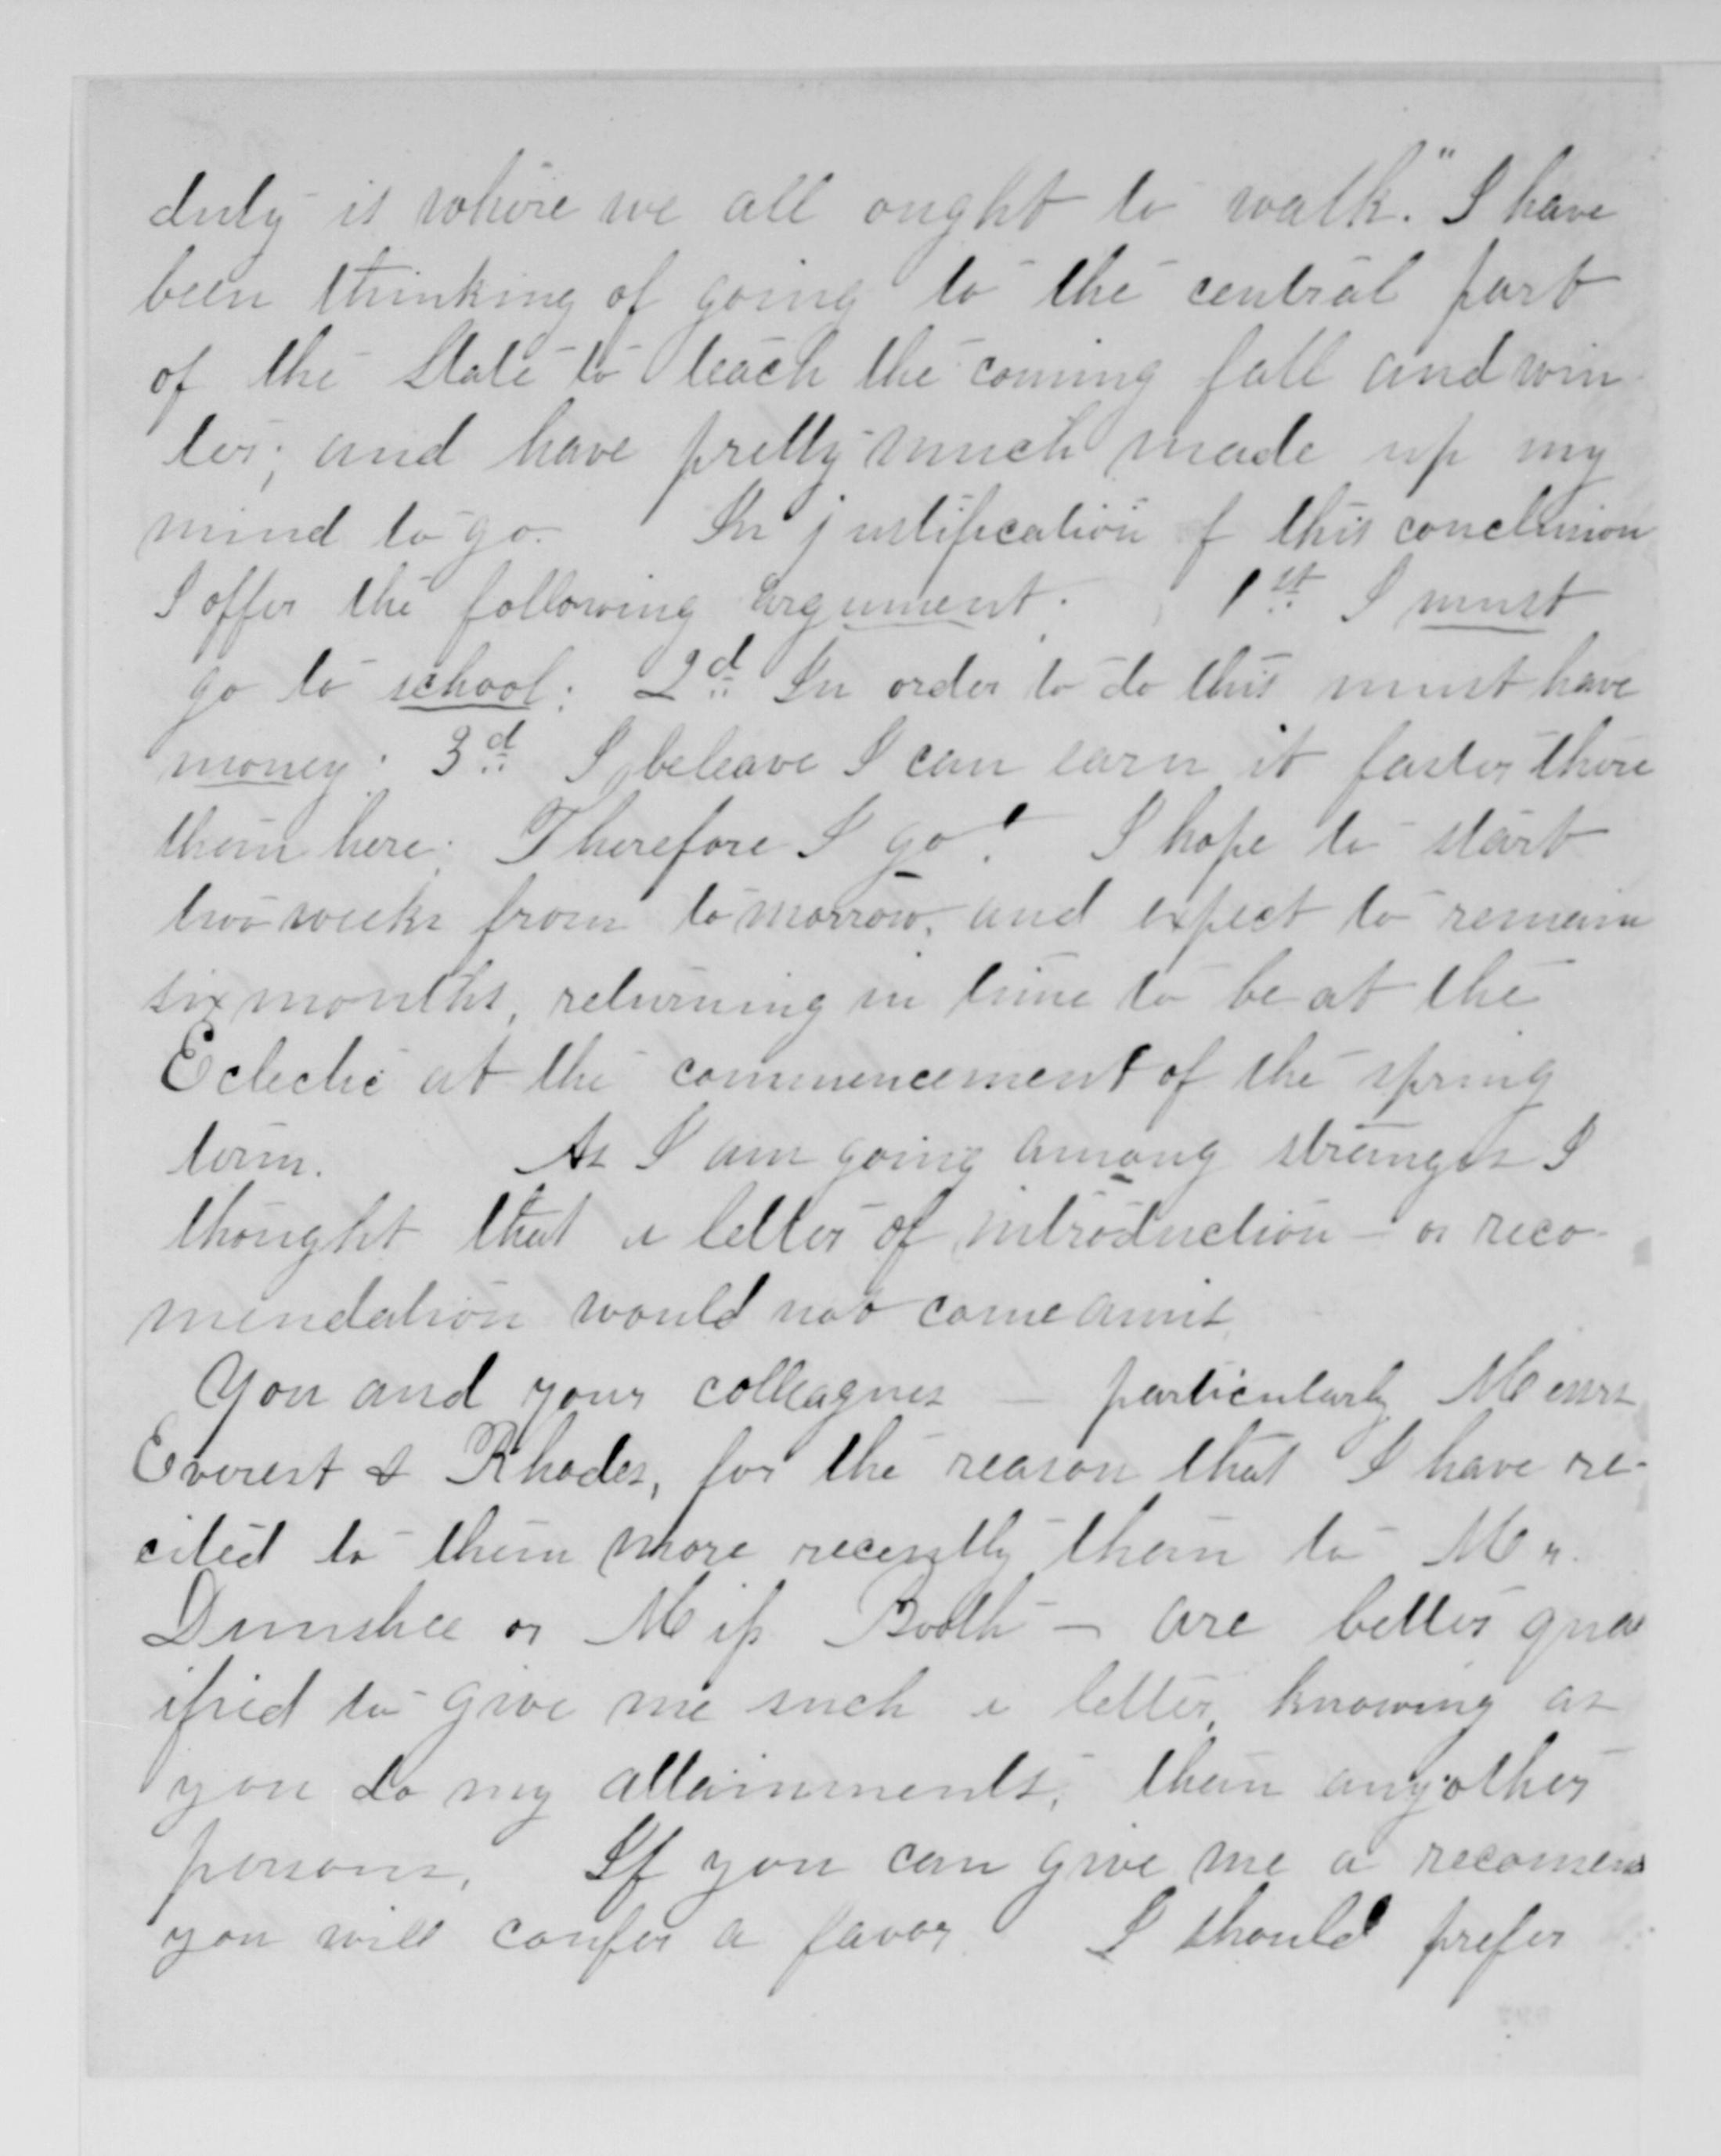 duty is where we all ought to walk." I have
been thinking of going to the central part
of the State to teach the coming fall and win
ter; and have pretty much made up my
mind to go. In justification of this conclusion
I offer the following argument. 1st I must
go to school: 2d In order to do this must have
money: 3d I beleave I can earn it faster there
than here: Therefore I go! I hope to start
two weeks from tomorrow, and expect to remain
six months, returning in time to be at the
Eclectic at the commencement of the spring
term. As I am going among strangers I
thought that a letter of introduction – or reco-
mendation would not come amiss.
You and your colleagues — particularly Messrs
Everest & Rhodes, for the reason that I have re-
cited to them more recently than to Mr.
Dunshee or Miss Booth — are better qual
ified to give me such a letter, knowing as
you do my attainments, than any other
persons. If you can give me a recomend
you will confer a favor I should prefer